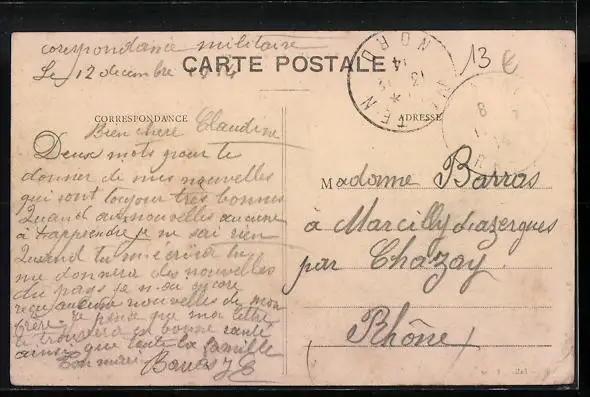 corespondance militaire
Le 12 decembre 1914
CARTE POSTALE
13
NORD
CORRESPONDANCE
ADRESSE
Bien chere Claudine
Deux mots pour te
donner de mes nouvelles
qui sont toujour très bonnes
Quand aux nouvelles aucune
à t'apprendre je ne sai rien
Quand tu m'écrira tu
me donnera des nouvelles
du pays je n'ai encore
reçu aucune nouvelles de mon
frère Je pense que ma lettre
te trouvera en bonne santé
ainsi que toute la famille
Ton mari Barras
Madame Barras
à Marcilly d'azergues
par Chazay
Rhône